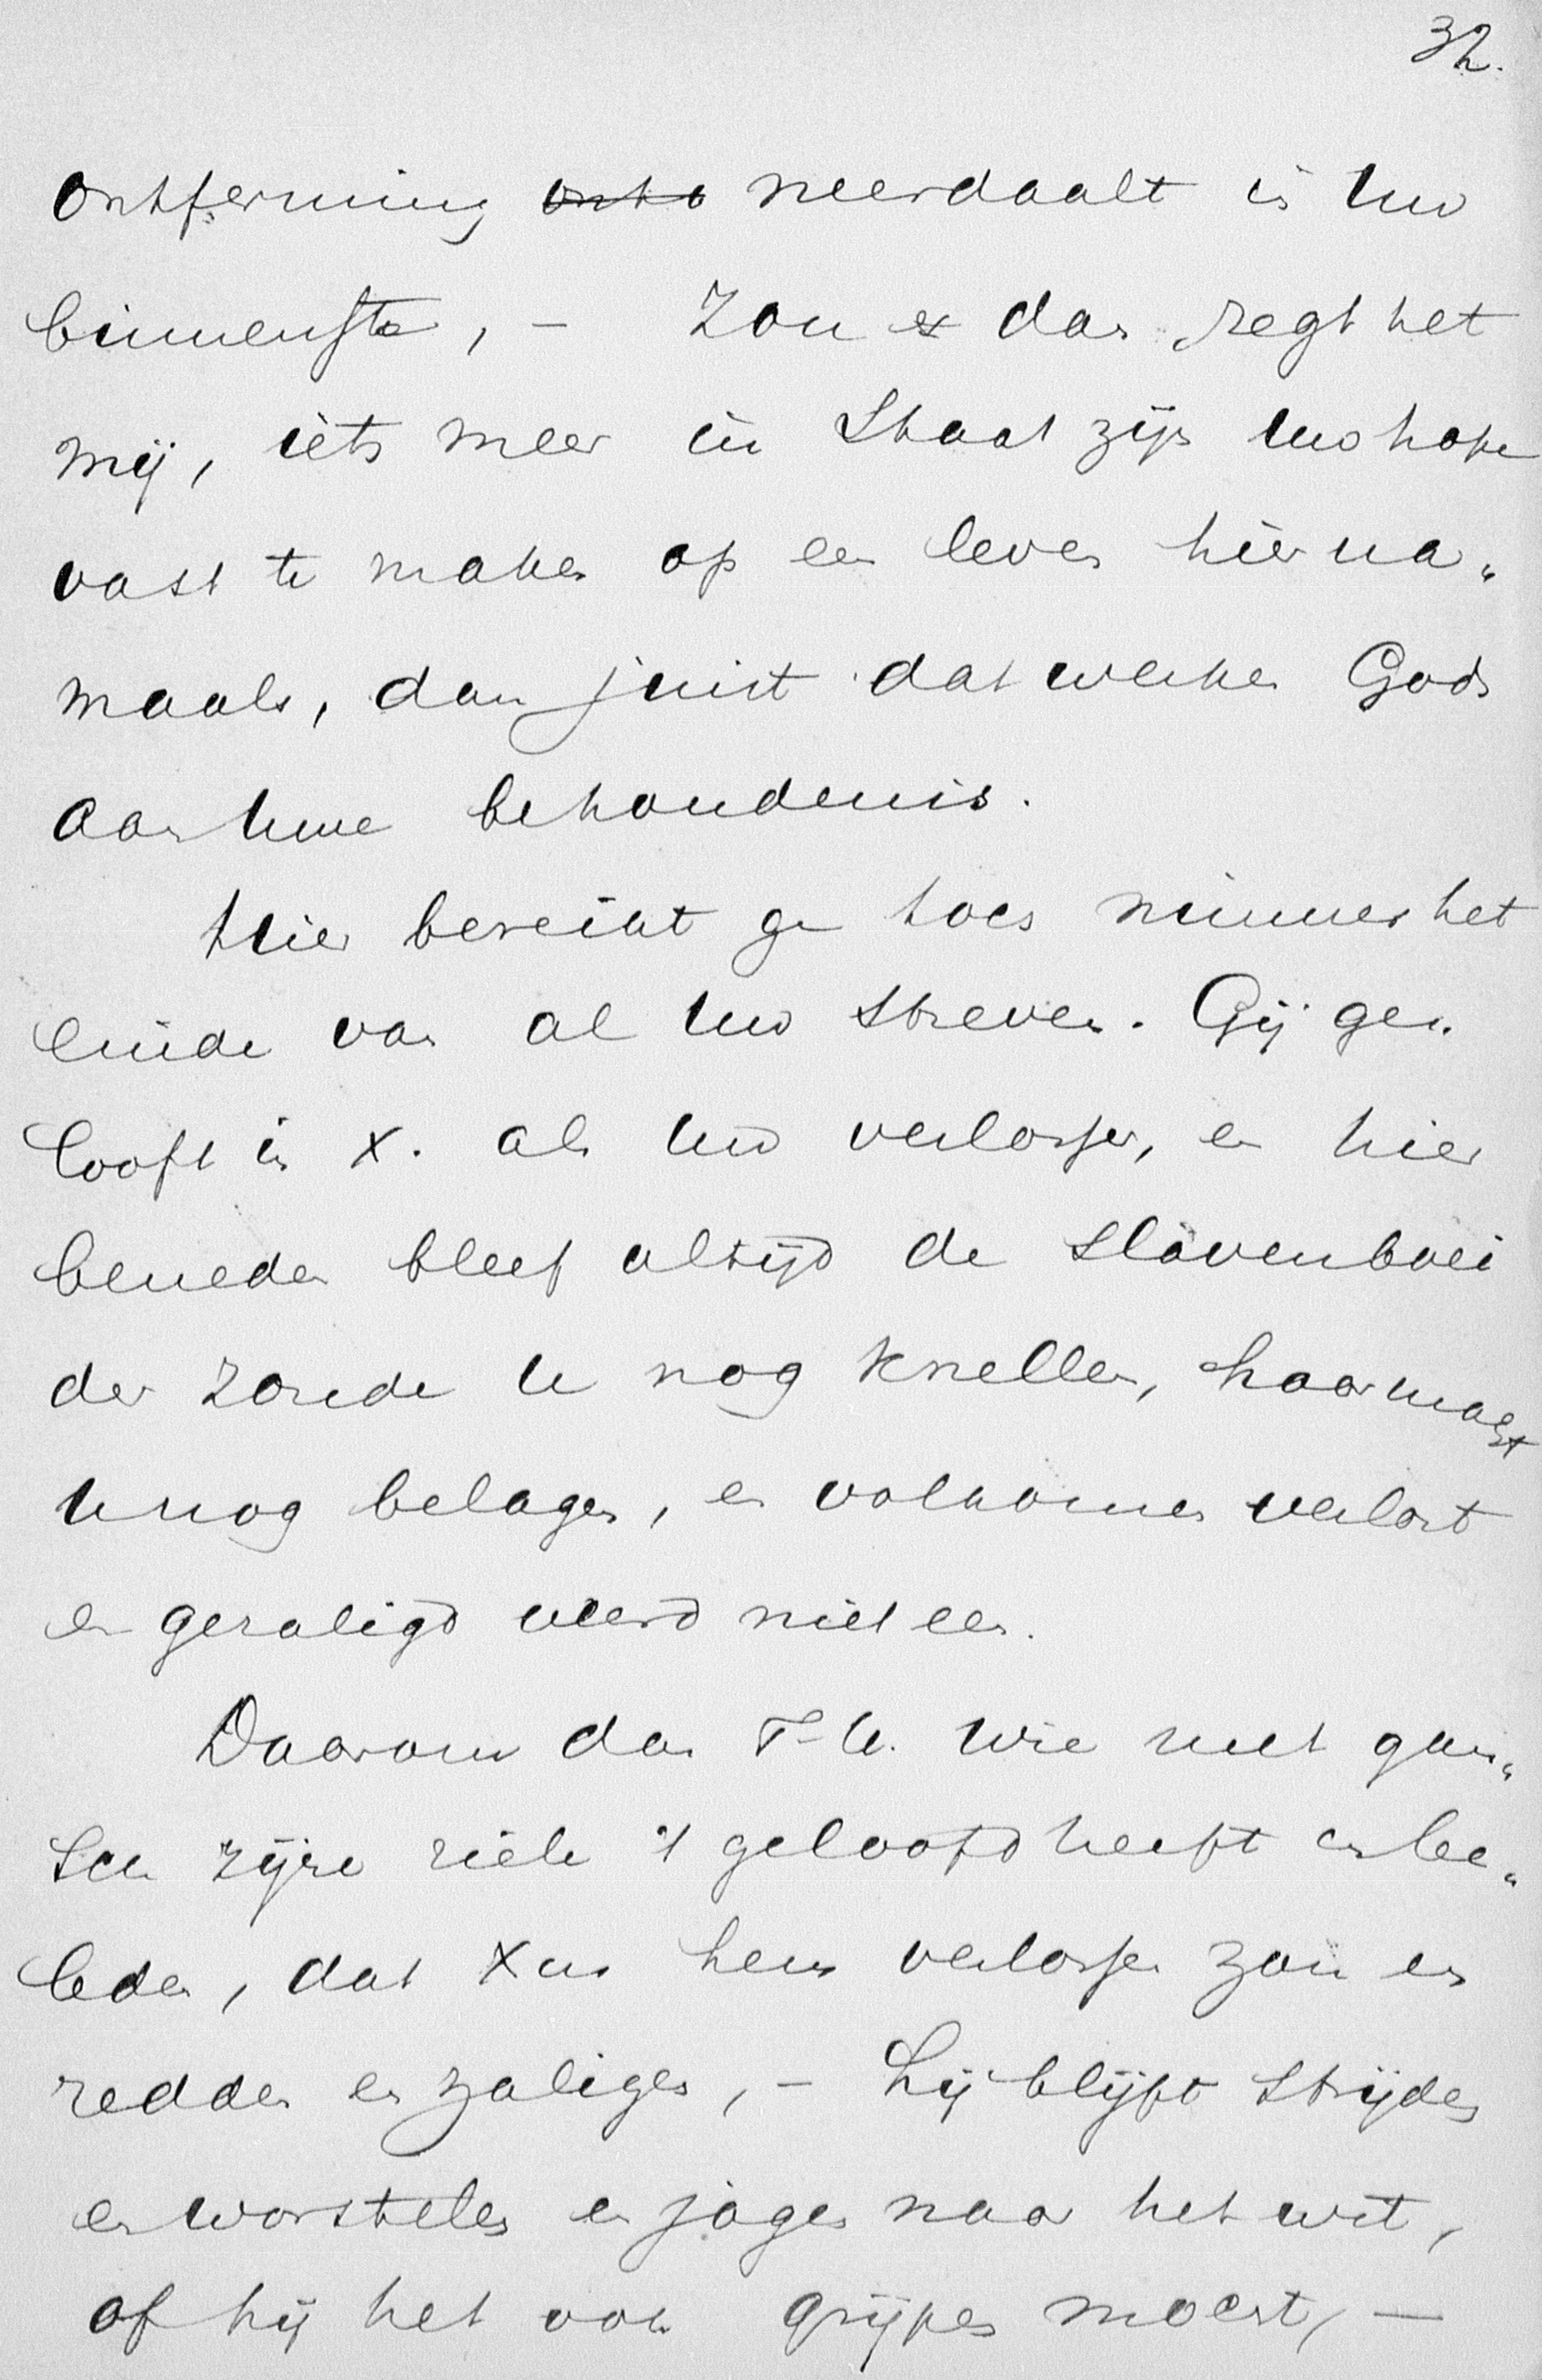 32.
ontferming onto neerdaalt in Uw
binnenste, – Zou er dan zegt het
mij, iets meer in Staat zijn Uw hope
vast te maken op een leven hierna„
maals, dan juist dat werken Gods
aan Uwe behoudenis.
Hier bereikt ge toch nimmer het
einde van al Uw streven. Gij ge„
looft in X. als Uw verlosser, en hier
beneden bleef altijd de slavenboei
der zonde U nog knellen, haar magt
U nog belagen, en volkomen verlost
en gezaligd werd niet een.
Daarom dan T-U. wie met gan„
sch zijn ziele 't geloofd heeft en be„
leden, dat Xus hem verlossen zou en
redden en zaligen, – hij blijft strijden
en worstelen en jagen naar het wit,
of hij het ook grijpen moest, –